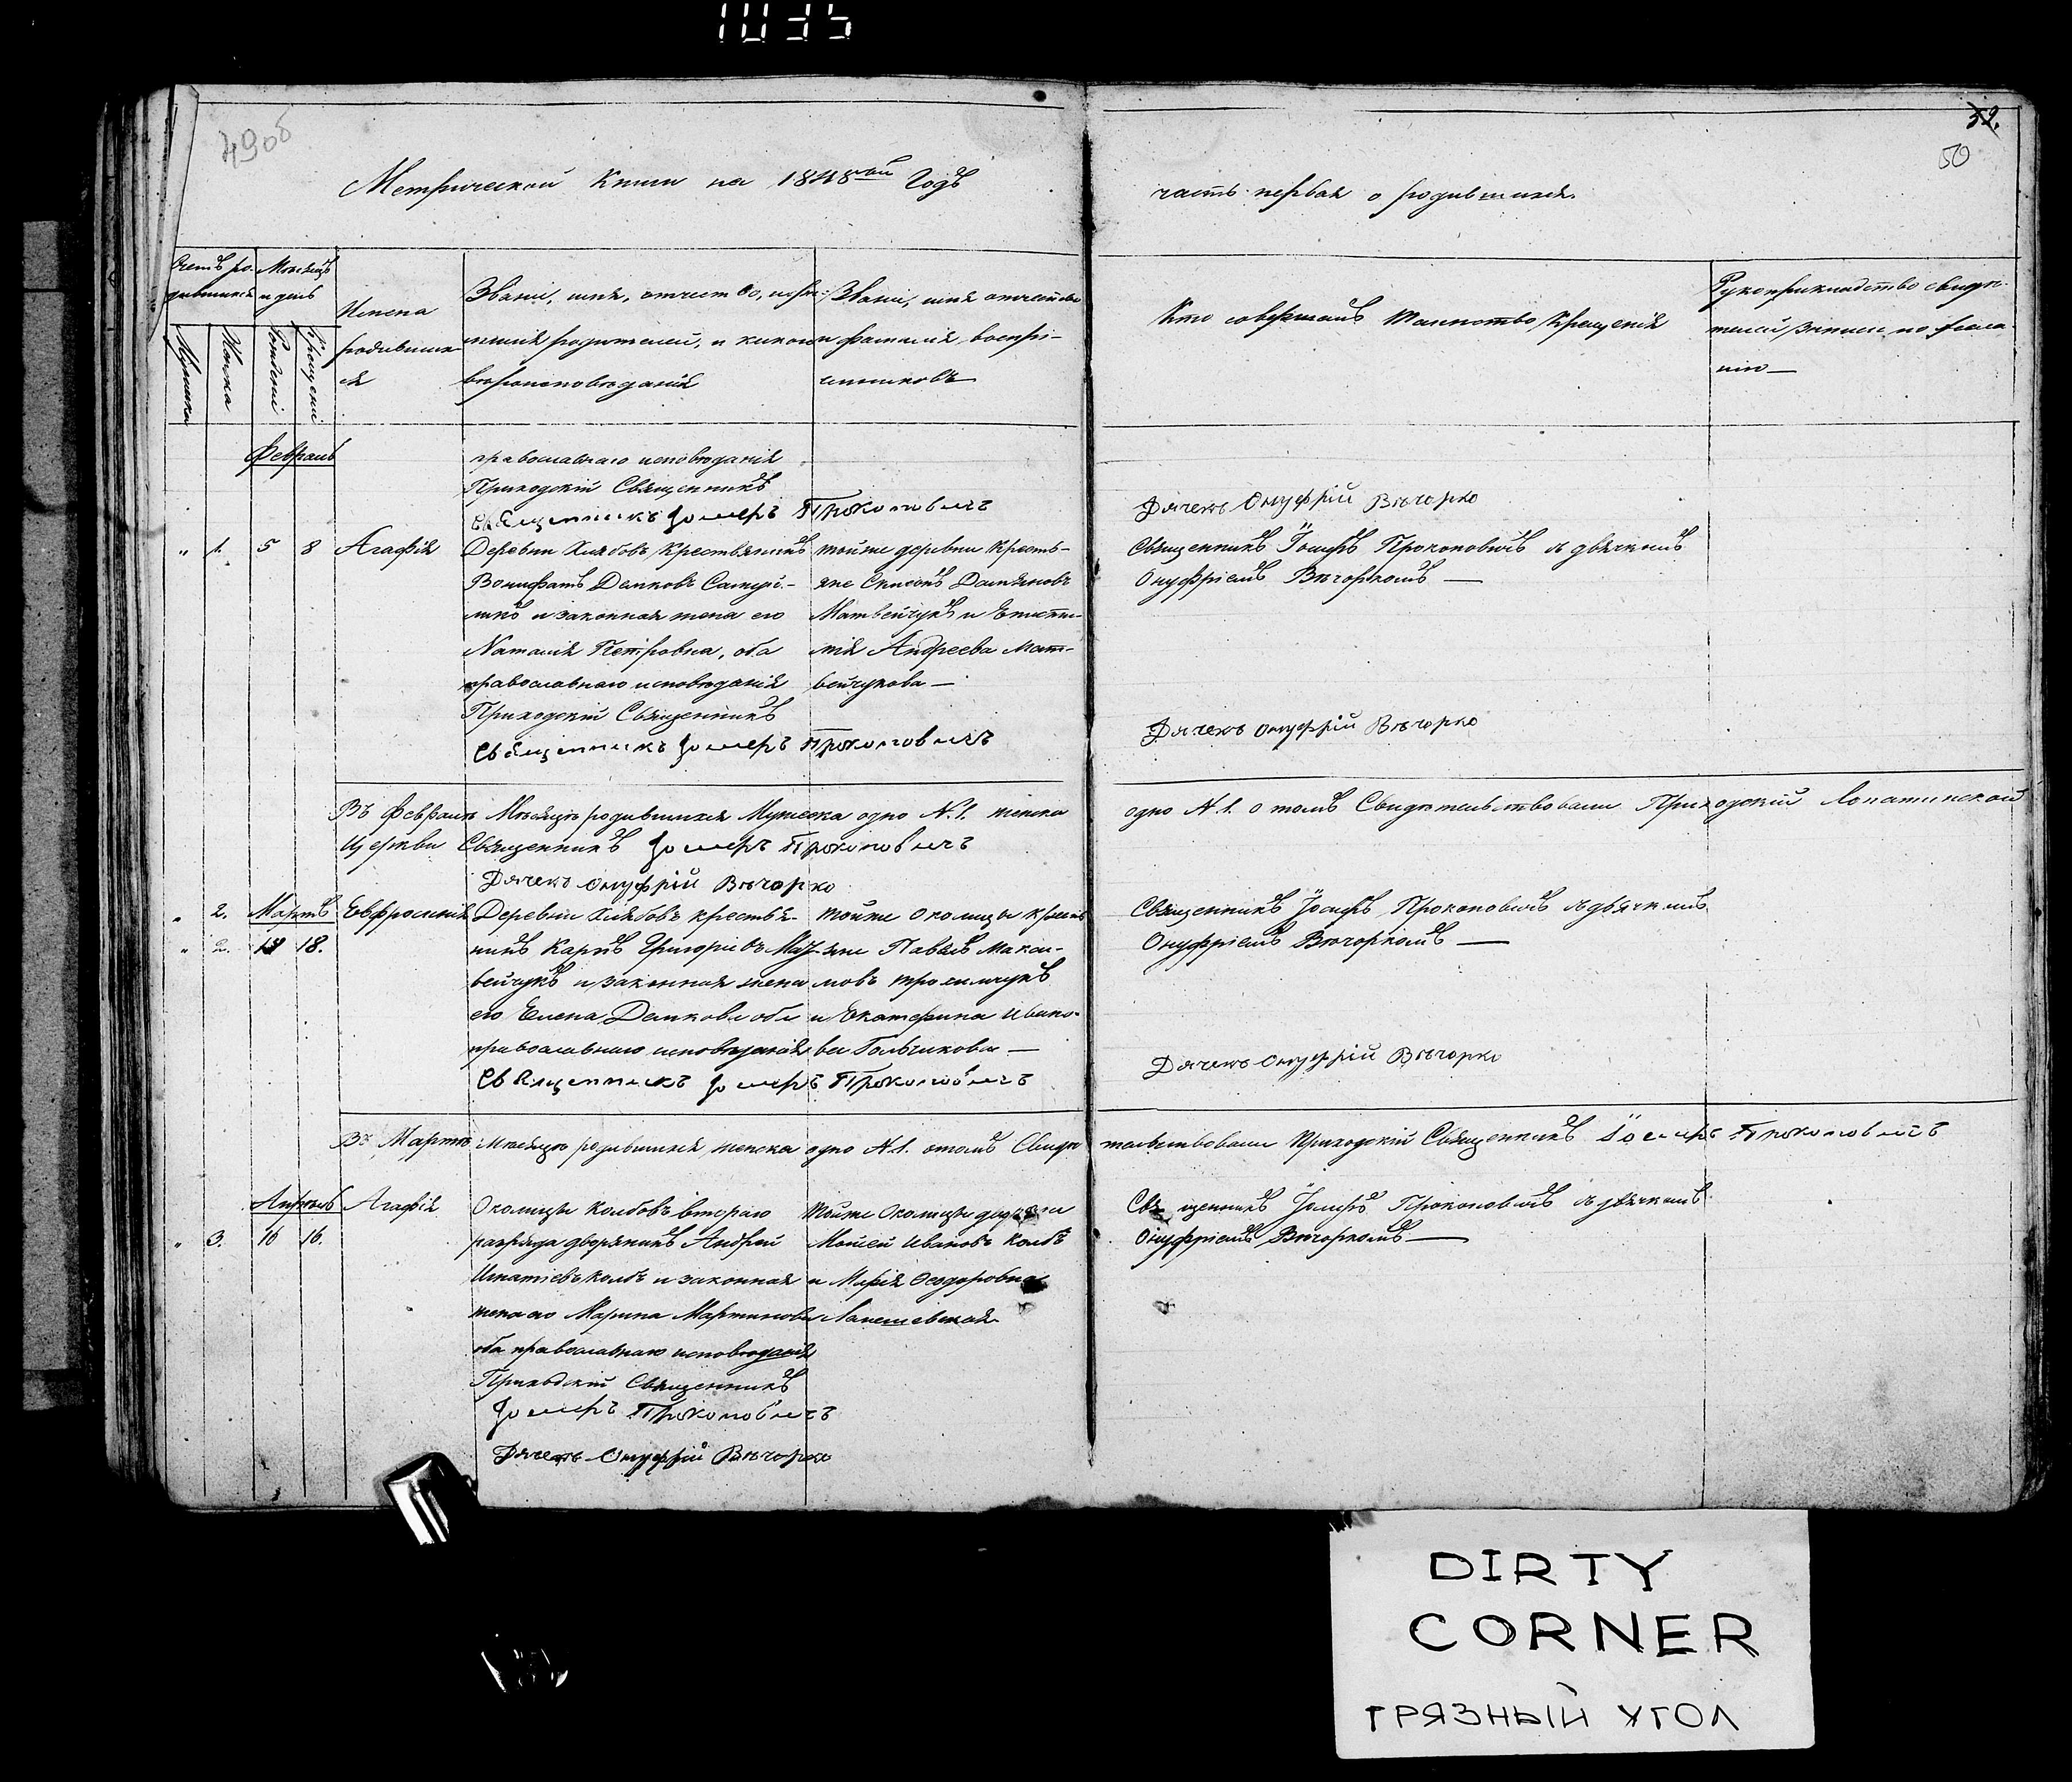 1035
49об
52.
50
Метрической Книги на 1848мой Годъ
часть первая о родившихся.
Счетъ ро-
дившихся
Мужеска
Женска
Мѣсяцъ
и день
Рожденія
Крещенія
Имена
родивших-
ся
Званіе, имя, отчество,
родителей, и какого
вѣроисповѣданія
Званіе, имя отчество
и фамилія воспрі-
емниковъ
Кто совершалъ таинство Крещенія
Рукоприкладство свидѣ-
телей записи по жела-
нію
Февраль
православнаго исповѣданія
Приходскій Священникъ
Священникъ Іосифъ Прокоповичъ
Дячекъ Онуфрій Вѣчорко
" 1. 5 8 Агафія
Деревни Хлябовъ Крестьянинъ
Вонифатъ Демковъ
и законная жена его
Наталія Петровна, оба
православнаго исповѣданія
Приходскій Священникъ
Священникъ Іосифъ Прокоповичъ
тойже деревни Кресть-
яне Демяновъ
Матвейчукъ и
Андреева Мат-
вейчукова
Священникъ Іосифъ Прокоповичъ съ дьячкомъ
Онуфріемъ Вѣчоркомъ
Дячекъ Онуфрій Вѣчорко
Въ Февралѣ Мѣсяцѣ родившихся Мужеска одно N.1. женска одно N.1. о томъ Свидѣтельствовали Приходскій Лопатинской
Церкви Священникъ Іосифъ Прокоповичъ
Дячекъ Онуфрій Вѣчорко
" 2. Мартъ Евфросинія
" 2. 18 18.
Деревни Хлябовъ крестья-
нинъ Карпъ Григоріевъ Мат-
вейчукъ и законная жена
его Елена Демкова оба
православнаго исповѣданія
Священникъ Іосифъ Прокоповичъ
тойже Околицы крестья-
яне Павелъ Макси-
мовъ
и Екатерина Ивано-
ва
Священникъ Іосифъ Прокоповичъ съ дьячкомъ
Онуфріемъ Вѣчоркомъ
Дячекъ Онуфрій Вѣчорко
Въ Мартѣ Мѣсяцѣ родившихся женска одно N.1. о томъ Свидѣтельствовали Приходскій Священникъ Іосифъ Прокоповичъ
Апрѣль Агафія
" 3. 16 16.
Околицы Колбовъ втораго
разряда дворянинъ Андрей
Игнатіевъ Колбъ и законная
жена его Марина Мартинова
оба православнаго исповѣданія
Приходскій Священникъ
Іосифъ Прокоповичъ
Дячекъ Онуфрій Вѣчорко
тойже Околицы дворяни
Мойсей Ивановъ Колбъ
и Марія Ѳеодоровна
Священникъ Іосифъ Прокоповичъ съ дьячкомъ
Онуфріемъ Вѣчоркомъ
DIRTY
CORNER
ГРЯЗНЫЙ УГОЛ